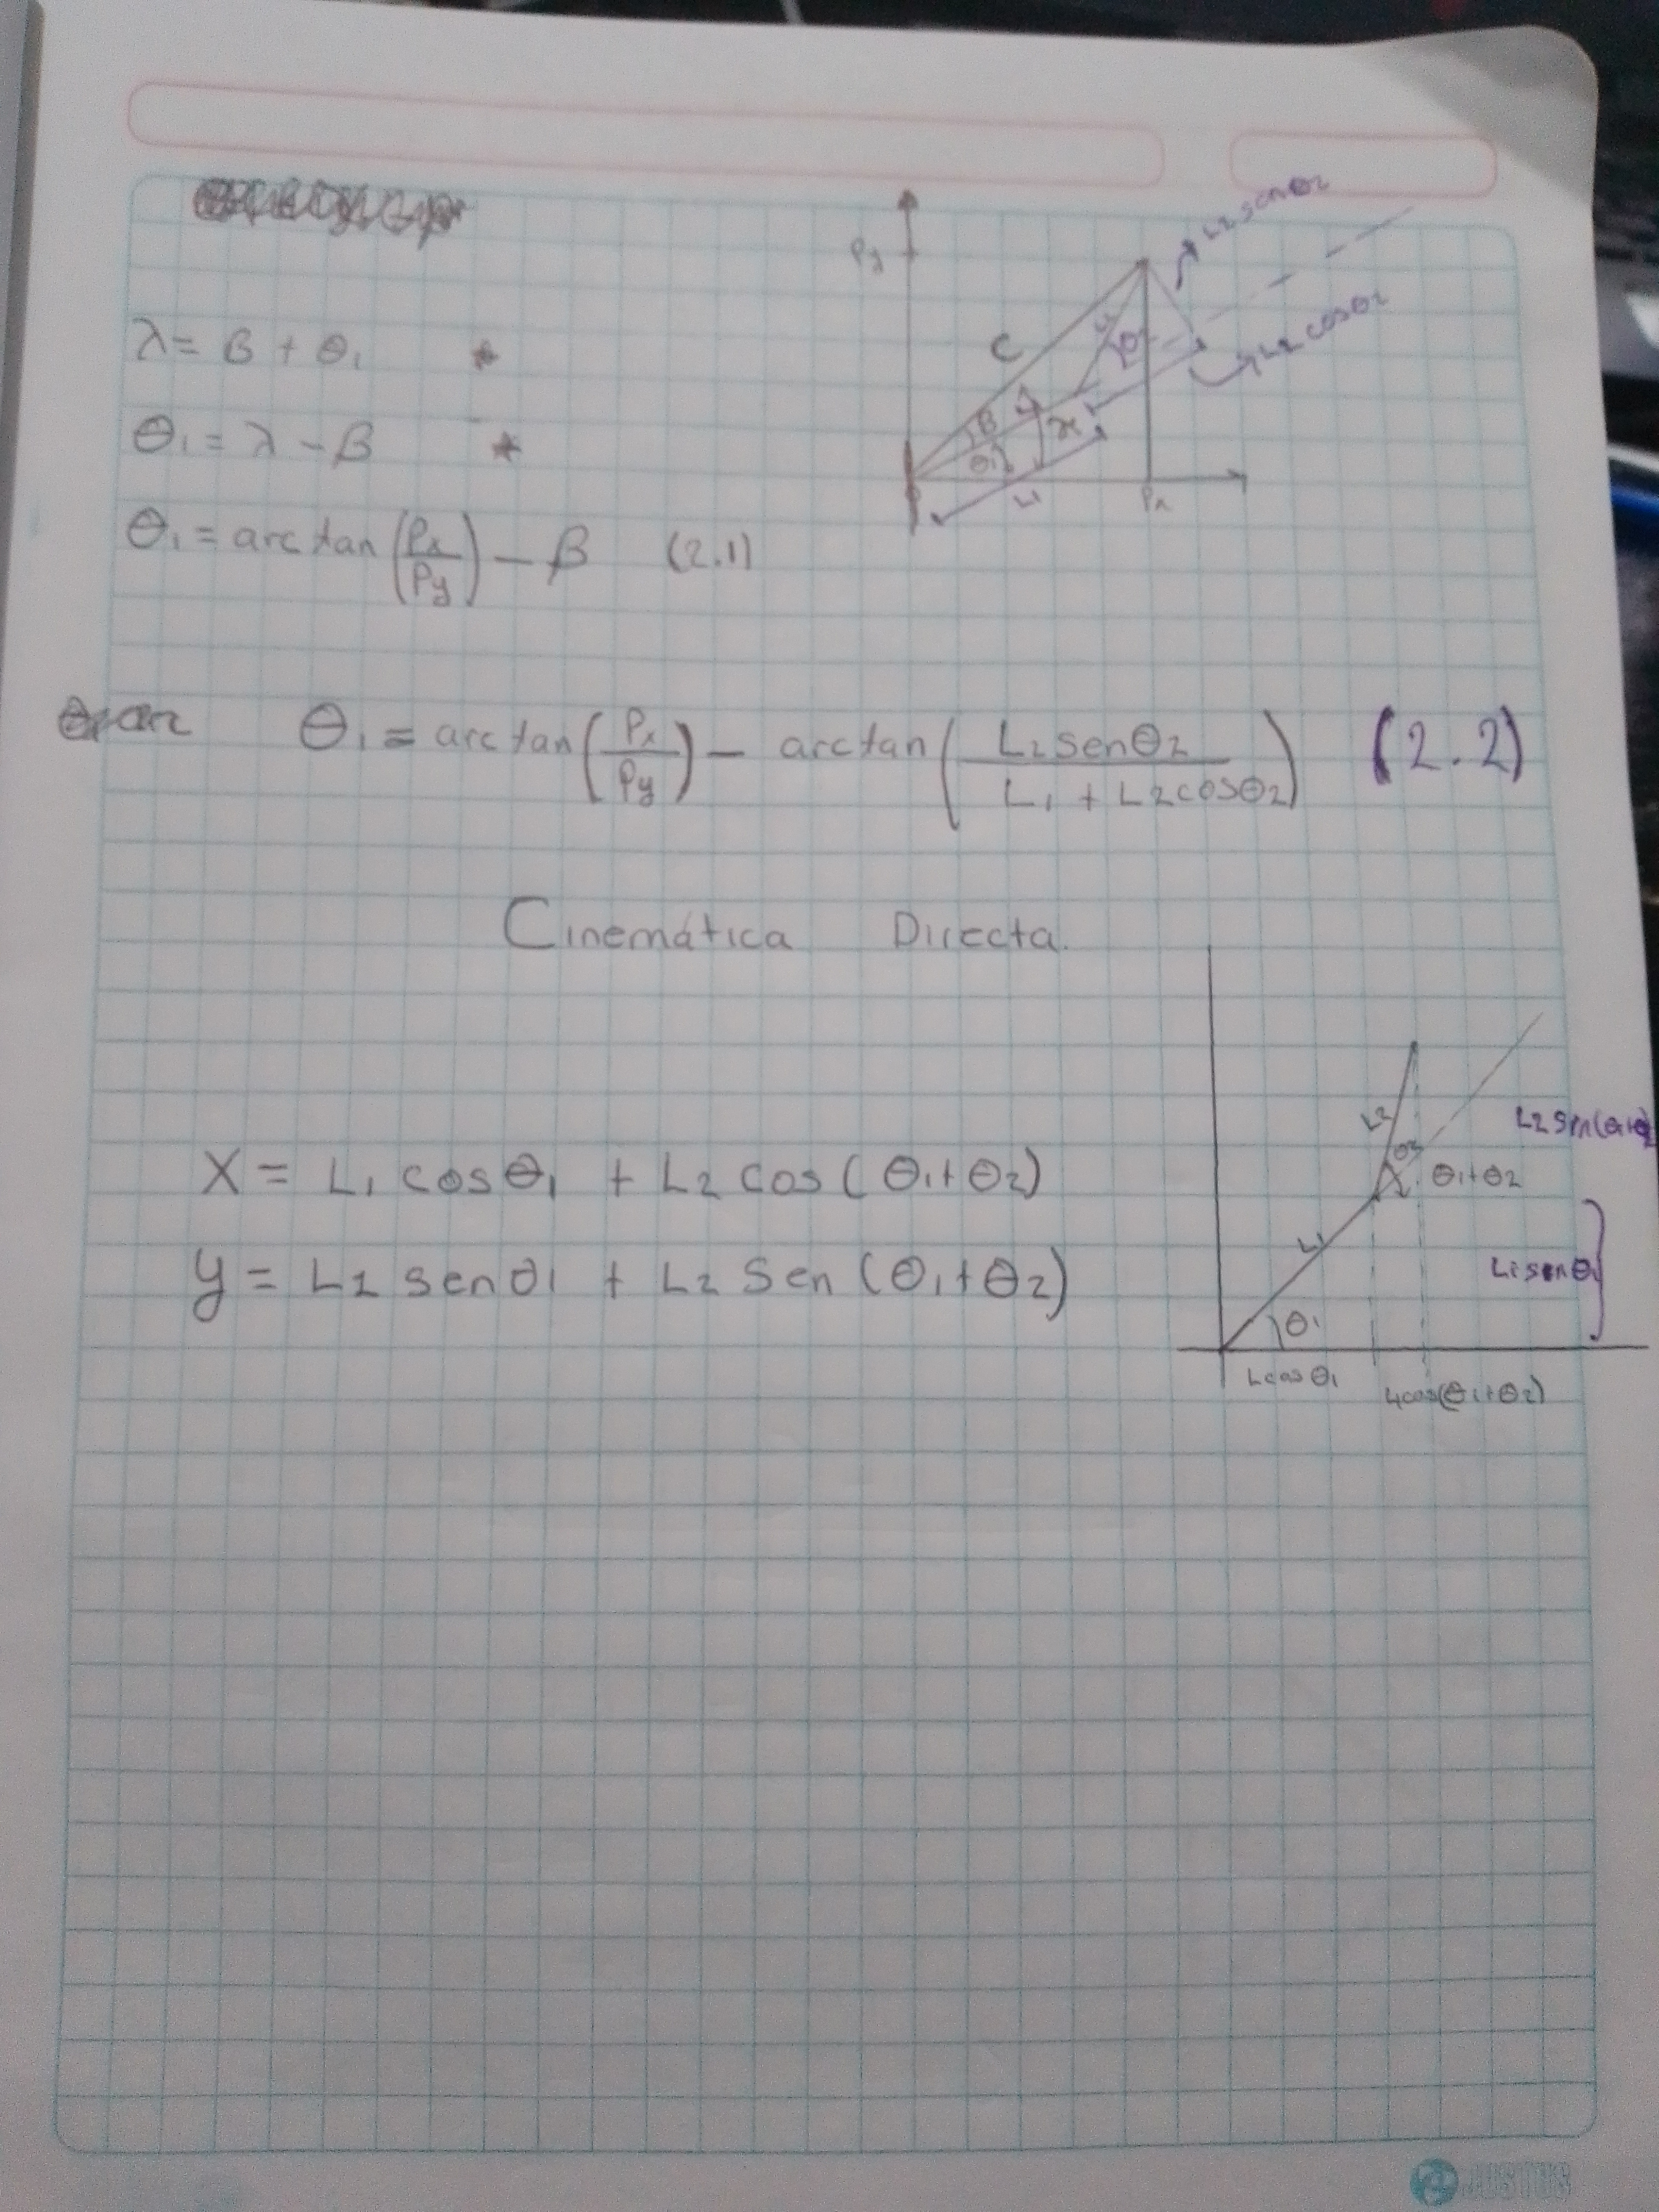 λ = β + θ₁ *
θ₁ = λ - β *
θ₁ = arctan(Px/Py) - β (2.1)
Py
C
L2 senθ2
L2 cosθ2
β
θ₁
L1
Px
θ₁ = arctan(Px/Py) - arctan(L2senθ2/L1 + L2cosθ2) (2.2)
Cinemática Directa.
X = L1 cosθ1 + L2 cos(θ1+θ2)
y = L2 senθ1 + L2 Sen(θ1+θ2)
L2
θ2
θ1+θ2
L1
L1 senθ1
θ1
Lcosθ1
JUSTUS